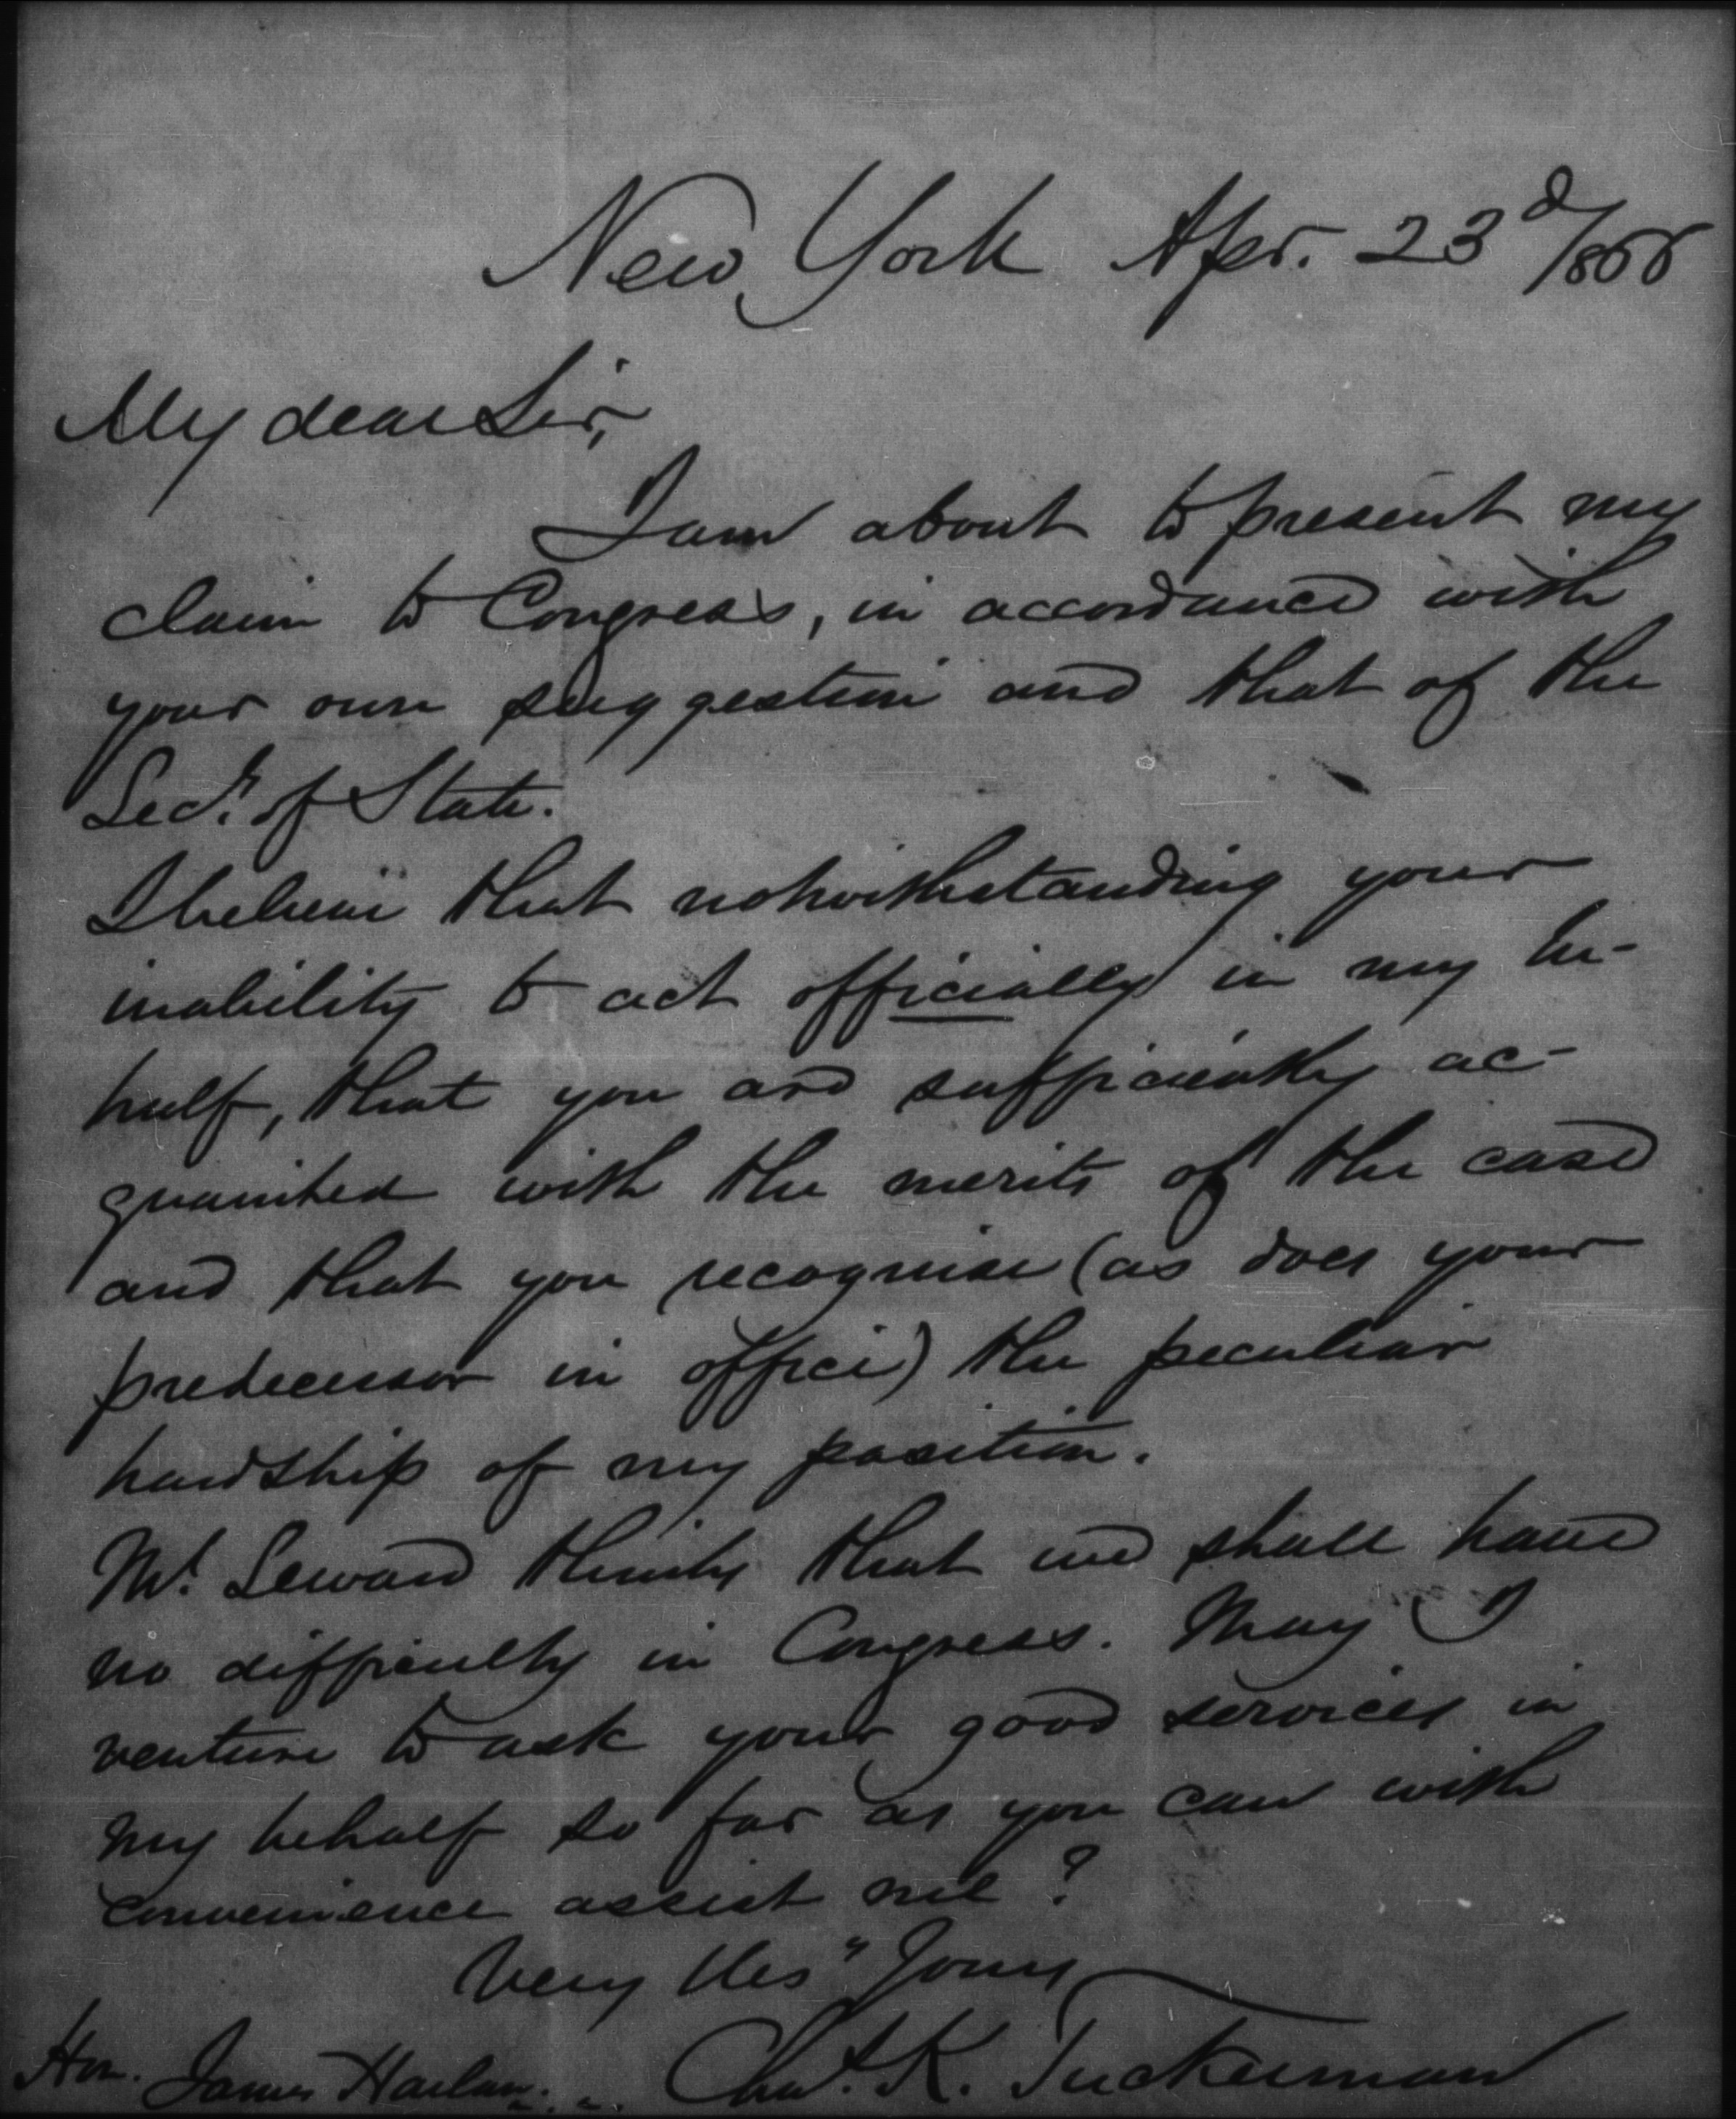 New York Apr. 23d/1866
My dear Sir,
I am about to present my
claim to Congress, in accordance with
your own suggestion and that of the
Secy. of State.
I believe that notwithstanding your
inability to act officially in my be-
half, that you are sufficiently ac-
quainted with the merits of the case
and that you recognise (as does your
predecessor in office) the peculiar
hardship of my position.
Mr. Seward thinks that we shall have
no difficulty in Congress. May I
venture to ask your good services in
my behalf so far as you can with
convenience assist me?
Very Res" Yours
Hon. James Harlan. Chas. K. Tuckerman